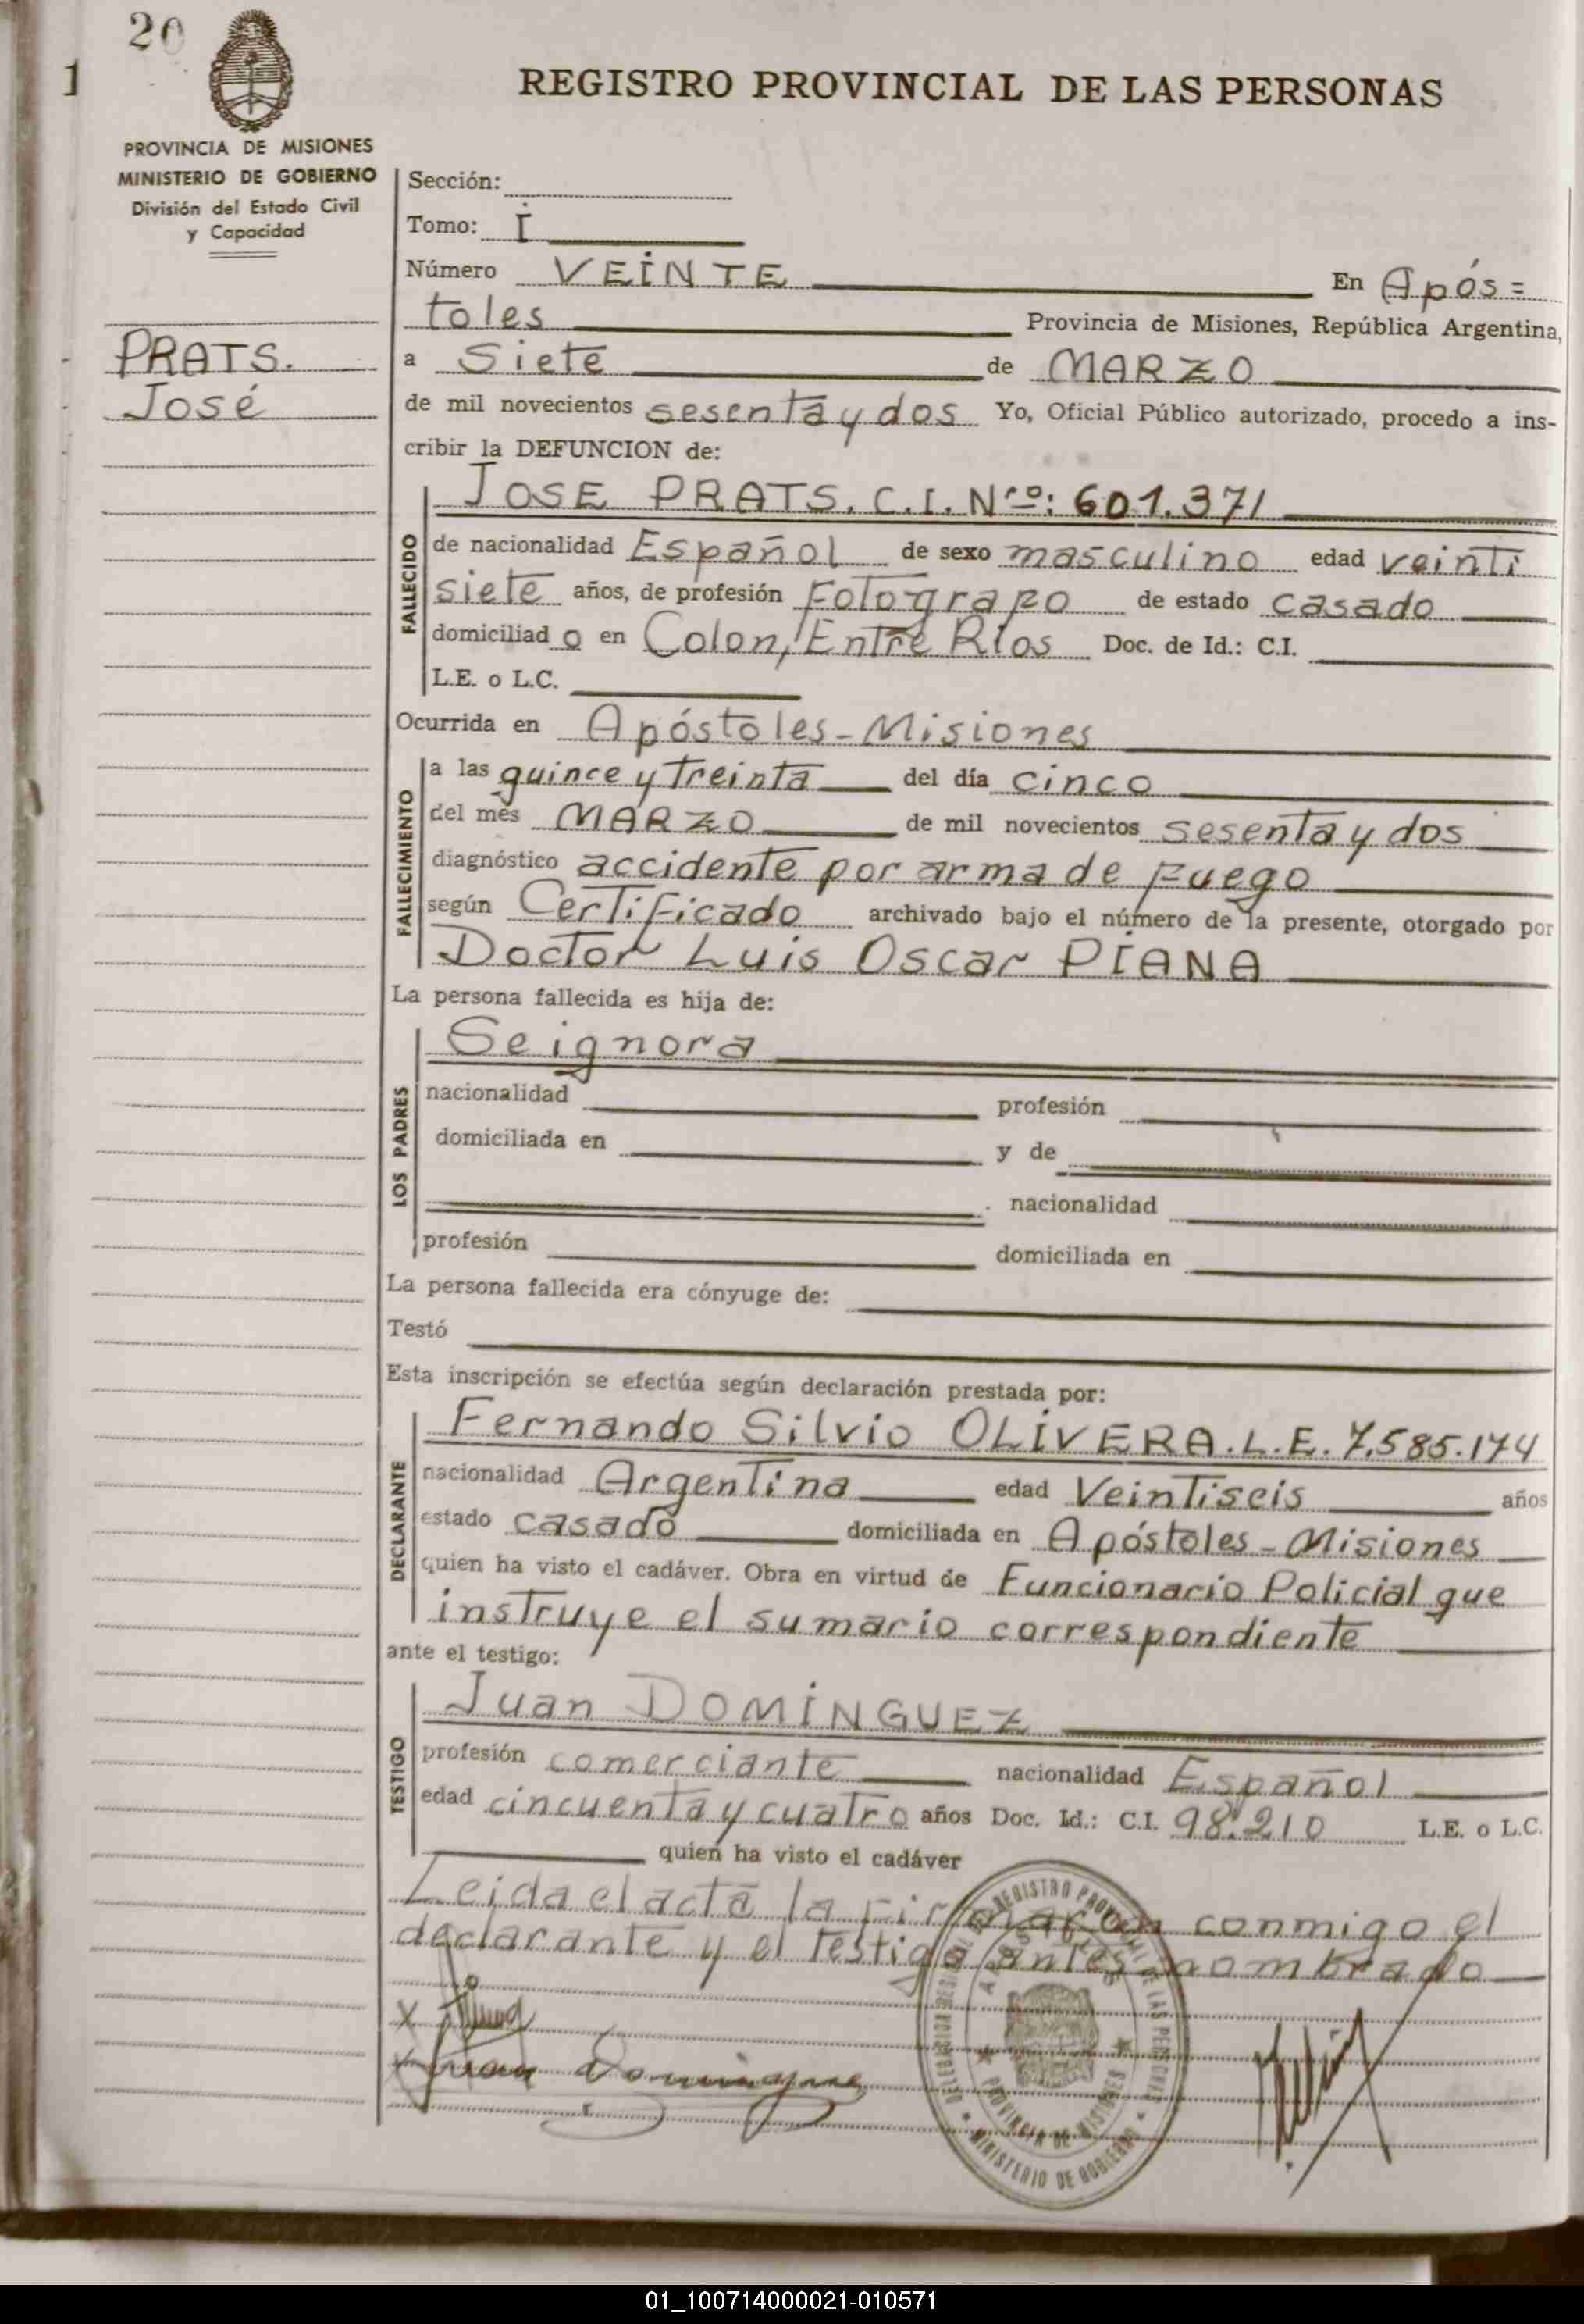 20
1
REGISTRO PROVINCIAL DE LAS PERSONAS
PROVINCIA DE MISIONES
MINISTERIO DE GOBIERNO
División del Estado Civil
y Capacidad
PRATS.
José
Sección:
Tomo: I
Número VEINTE En Após=
toles Provincia de Misiones, República Argentina,
a Siete de MARZO
de mil novecientos sesenta y dos Yo, Oficial Público autorizado, procedo a ins-
cribir la DEFUNCION de:
FALLECIDO
JOSE PRATS. C.I. Nro: 601.371
de nacionalidad Español de sexo masculino edad veinti
siete años, de profesión Fotografo de estado casado
domiciliad o en Colon, Entre Ríos Doc. de Id.: C.I.
L.E. o L.C.
Ocurrida en Apóstoles - Misiones
FALLECIMIENTO
a las quince y treinta del día cinco
del mes MARZO de mil novecientos sesenta y dos
diagnóstico accidente por arma de fuego
según Certificado archivado bajo el número de la presente, otorgado por
Doctor Luis Oscar PIANA
La persona fallecida es hija de:
LOS PADRES
Se ignora
nacionalidad profesión
domiciliada en y de
nacionalidad
profesión domiciliada en
La persona fallecida era cónyuge de:
Testó
Esta inscripción se efectúa según declaración prestada por:
DECLARANTE
Fernando Silvio OLIVERA. L.E. 7.585.174
nacionalidad Argentina edad Veintiseis años
estado casado domiciliada en Apóstoles - Misiones
quien ha visto el cadáver. Obra en virtud de Funcionario Policial que
instruye el sumario correspondiente
ante el testigo:
TESTIGO
Juan DOMINGUEZ
profesión comerciante nacionalidad Español
edad cincuenta y cuatro años Doc. Id.: C.I. 98.210 L.E. o L.C.
quien ha visto el cadáver
Leida el acta la firmaron conmigo el
declarante y el testigo antes nombrado
X
X Juan Dominguez
REGISTRO PROVINCIAL DE LAS PERSONAS
APOSTOLES
PROVINCIA DE MISIONES
MINISTERIO DE GOBIERNO
01_100714000021-010571